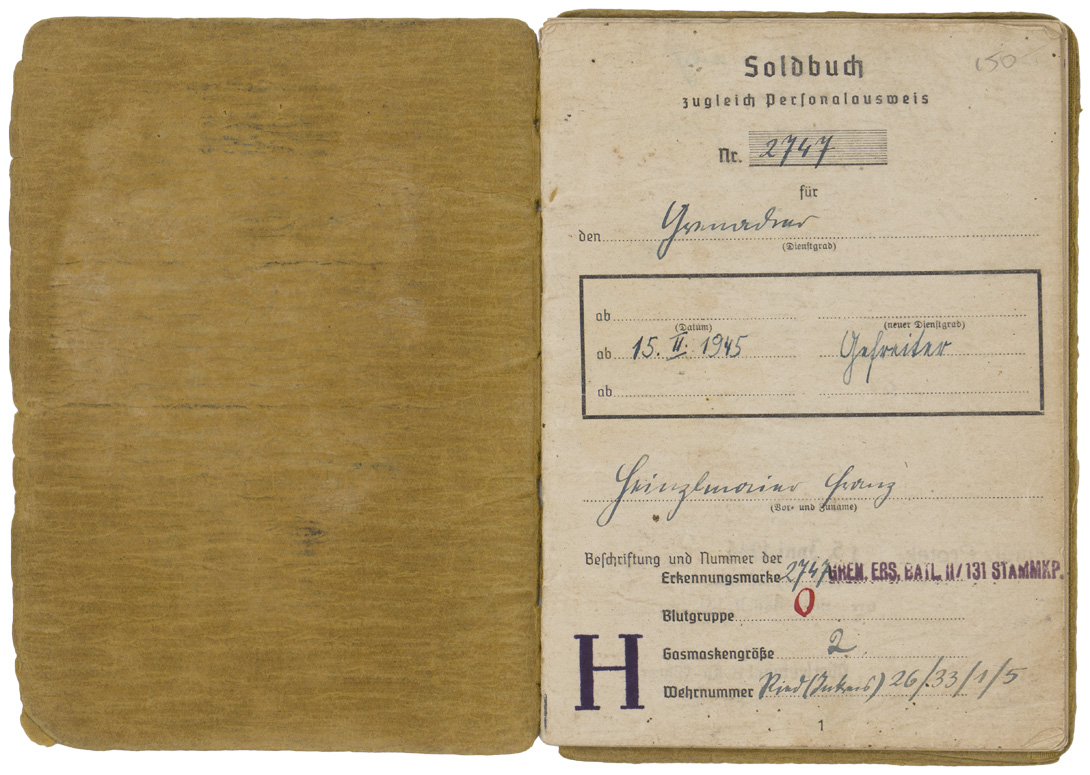 150
Soldbuch
zugleich Personalausweis
Nr. 2747
für
den Grenadier
(Dienstgrad)
ab
(Datum) (neuer Dienstgrad)
ab 15. II. 1945 Gefreiter
ab
Heinzlmaier Franz
(Vor- und Zuname)
Beschriftung und Nummer der
Erkennungsmarke 2747 GREN. ERS. BATL. II/131 STAMMKP.
Blutgruppe O
Gasmaskengröße 2
H
Wehrnummer Ried (Innkreis) 26/33/1/5
1